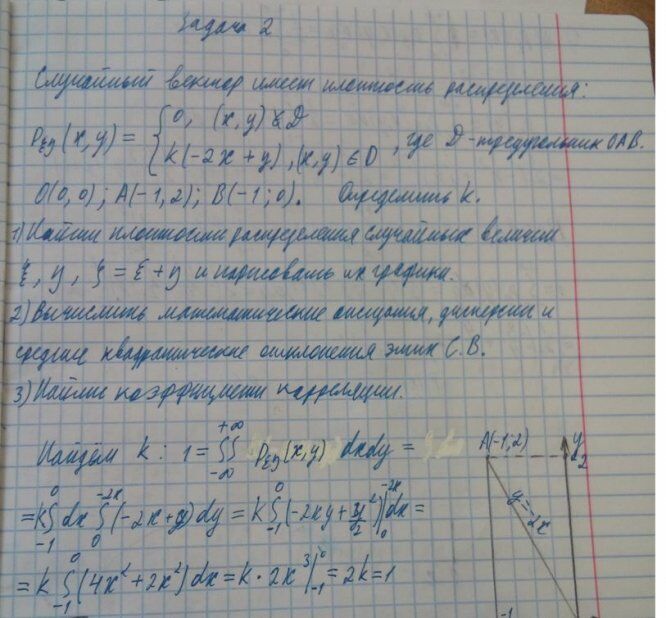 Задача 2
Случайный вектор имеет плотность распределения:
p_ξη(x,y) = { 0, (x,y) ∉ D
k(-2x+y), (x,y) ∈ D , где D - треугольник OAB.
O(0,0); A(-1,2); B(-1;0). Определить k.
1) Найти плотности распределения случайных величин
ξ, η, ζ = ξ+η и нарисовать их графики.
2) Вычислить математические ожидания, дисперсии и
средние квадратические отклонения этих С.В.
3) Найти коэффициент корреляции.
Найдём k: 1 = ∫∫_{-∞}^{+∞} p_ξη(x,y) dxdy =
= k∫_{-1}^{0} dx ∫_{0}^{-2x} (-2x+y)dy = k∫_{-1}^{0} (-2xy + y²/2)|_{0}^{-2x} dx =
= k∫_{-1}^{0} (4x²+2x²)dx = k·2x³|_{-1}^{0} = 2k = 1
A(-1;2)
y
2
y=-2x
-1